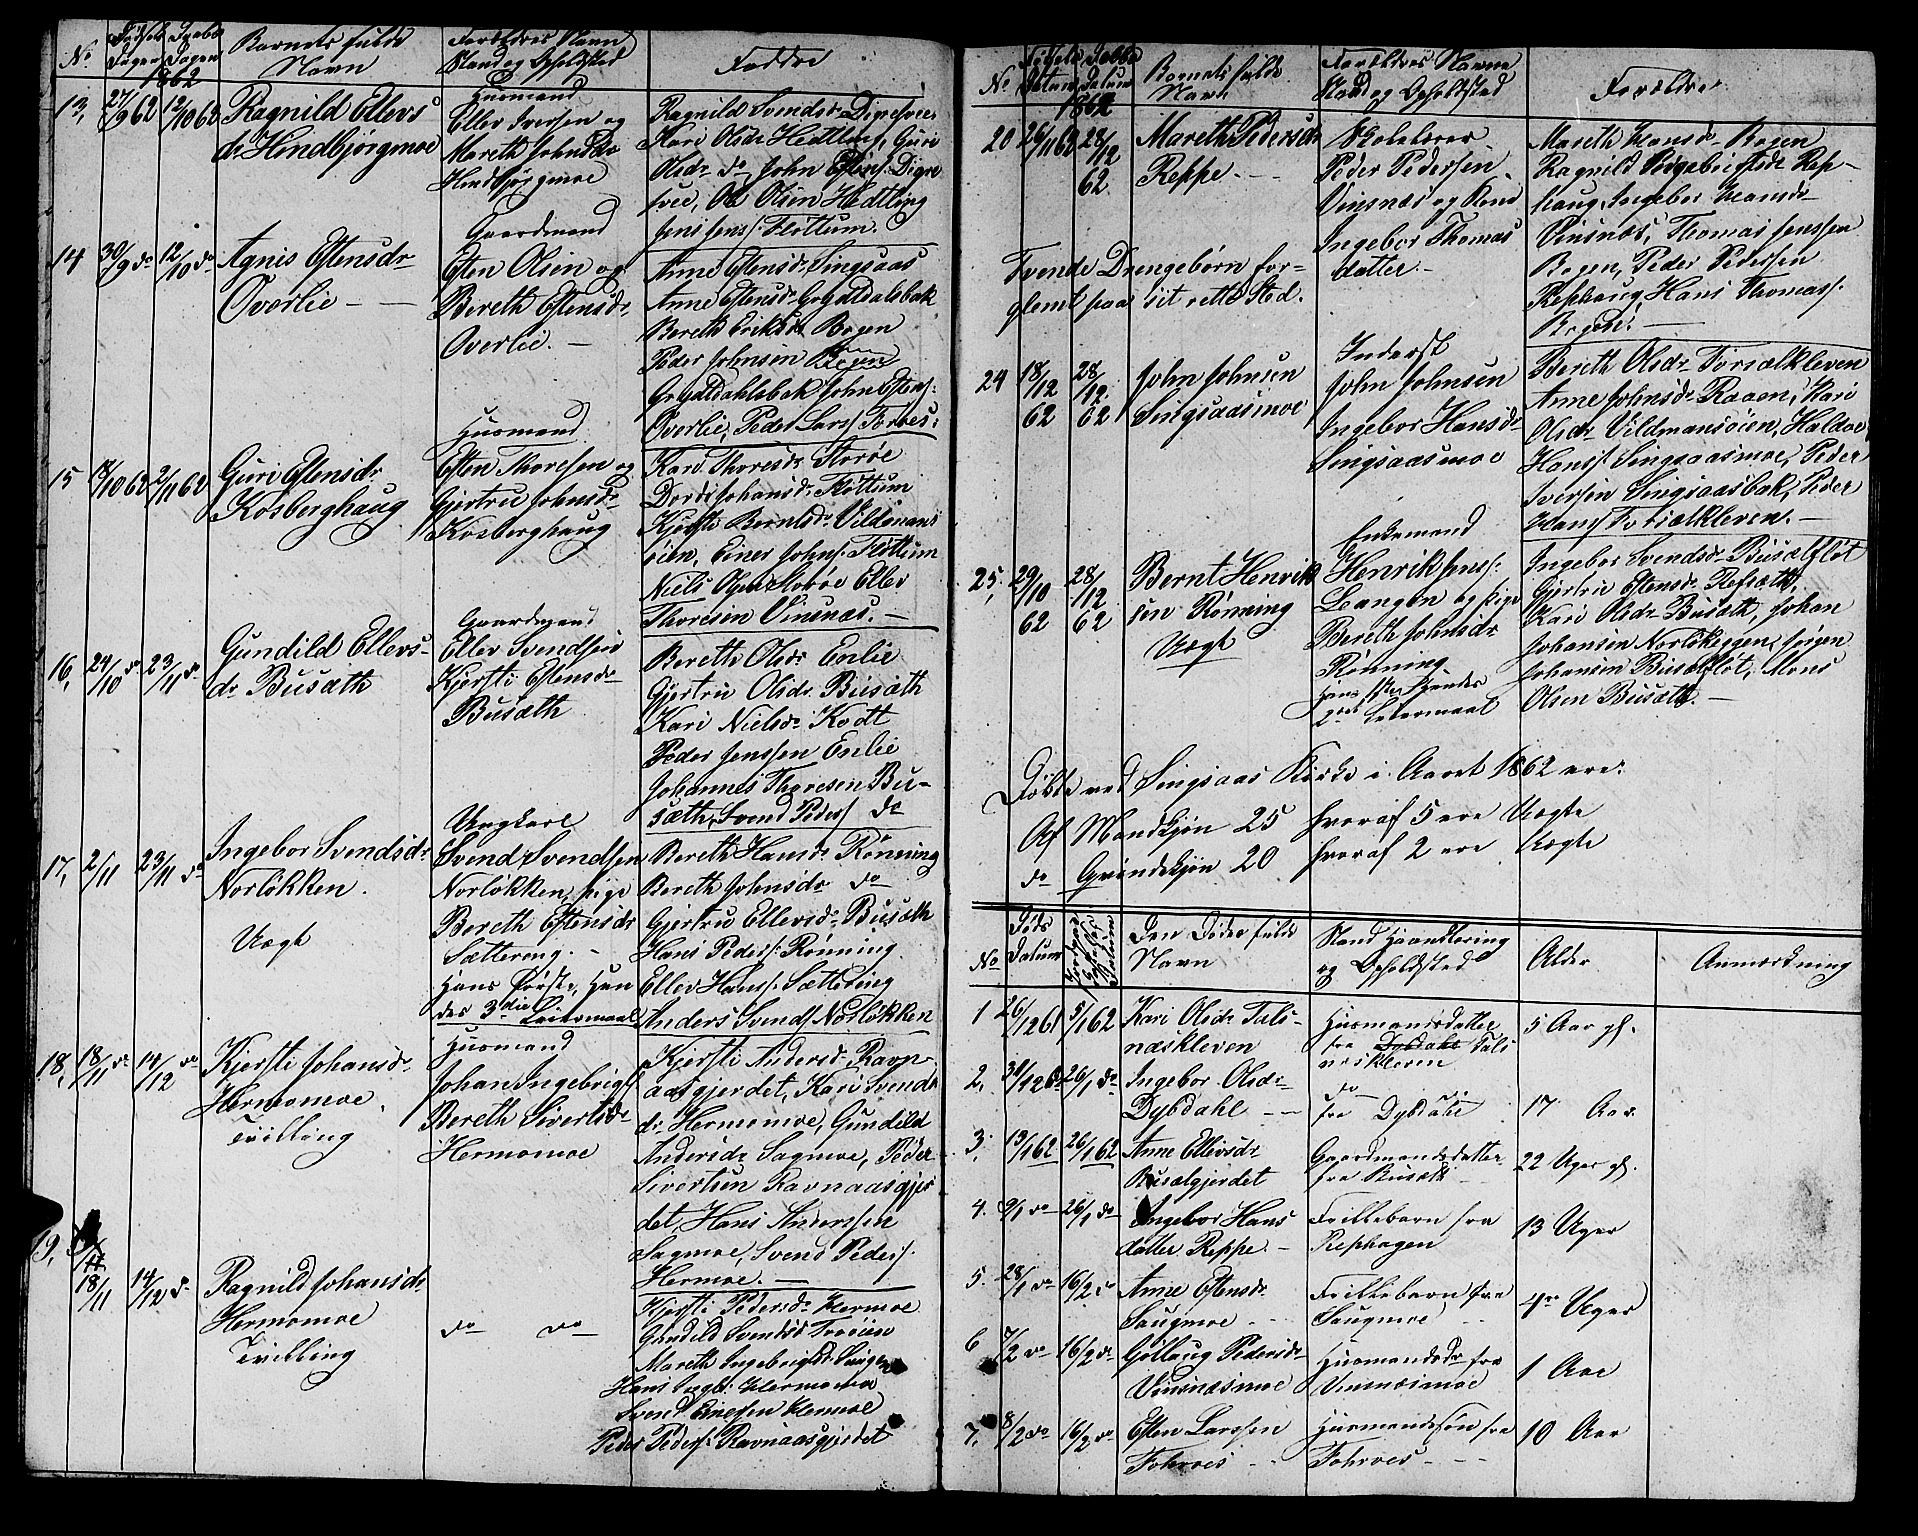 No.
Fødsels Dagen
Daabs Dagen
1862
Barnets fulde
Navn
Forældres Navn
Stand og Opholdsted
Faddre
13, 27/9 62 12/10 62
Ragnild Ellevs
dr Hindbjørgmoe
Huusmand
Ellev Iversen og
Mareth Johnsdr
Hindbjørgmoe
Ragnild Svendsdr Digresvee
Kari Olsdr Hedtling, Guri
Olsdr do, John Estens. Digre
svee, Ole Olsen Hedtling
Jens Jens. Fløttum.
14 30/9 do 12/10 do
Agnis Estensdr
Overlie
Gaardmand
Esten Olsen og
Bereth Estensdr
Overlie.
Anne Estensdr Singsaas
Anne Estensdr Gryddalsbak
Bereth Eriksdr Bogen
Peder Johnsen Bogen
Grytdahlsbak John Estens.
Overlie, Peder Lars. Forves.
15 18/10 62 2/11 62
Guri Estensdr
Kosberghaug
Huusmand
Esten Thoresen og
Gjertru Johnsdr
Kosberghaug
Kari Thoresdr Storøe
Dordi Johansdr Fløttum
Kjersti Berntsdr Vildmans
øien, Einer Johns. Fløttum
Niels Olsen Storøe Ellev
Thoresen Vinsnæs.
16, 24/10 do 23/11 do
Gundild Ellevs-
dr Busæth
Gaardmand
Ellev Svendsen
Kjersti Estensdr
Busæth
Bereth Olsdr Enlie
Gjertru Olsdr Busæth
Kari Nielsdr Kodt
Peder Jenssen Enlie
Johannes Thoresen Bu-
sæth, Svend Peders. do
17, 2/11 23/11 do
Ingebor Svendsdr
Norløkken.
Uægt
Ungkarl
Svend Svendsen
Norløkken, Pige
Bereth Estensdr
Sættereng.
Hans Første, Hen
des 3die Leiermaal
Bereth Hansdr Rønning
Bereth Johnsdr do
Gjertru Ellevsdr Busæth
Hans Peders. Rønning
Ellev Hans. Sættering
Anders Svends. Norløkken
18, 18/11 do 14/12 do
Kjersti Johansdr
Hermomoe.
Tvilling
Huusmand
Johan Ingebrigts.
Bereth Sivertsdr
Hermomoe
Kjersti Andersdr Ravn-
aasgjerdet, Kari Svends
dr Hermomoe, Gundild
Andersdr Sagmoe, Peder
Sivertsen Ravnaasgjer
det, Hans Anderssen
Sagmoe, Svend Peders.
Hermoe.
19,
18/11 14/12 do
Ragnild Johansdr
Hermomoe
Tvilling
do do
Kjersti Pedersdr Hermoe
Gundild Svendsd Troøien
Mareth Ingebrigtsdr
Hans Ingb. Hermomoe
Svend Einersen Hermoe
Peder Peders. Ravnaasgjerdet
No
Fødsels Datum
Daabs Datum
1862
Barnets fulde
Navn
Forældres Navne
Stand og Opholdsted
Forældre
20 26/11 62 28/12 62
Mareth Pedersdr
Reppe.
Skolelærer
Peder Pedersen
Vinsnæs og Kone
Ingebor Thomas
datter.
Mareth Hansdr Bogen
Ragnild Ingebrigtsdr Rep-
haug, Ingebor Hansdr
Vinsnæs, Thomas Jenssen
Bogen, Peder Pedersen
Rephaug, Hans Thomas.
Bogen.
Tvende Drengebørn for-
glemt paa sit rette Sted.
24 18/12 62 28/12 62
John Johnsen
Singsaasmoe
Inderst
John Johnsen
Ingebor Hansdr
Singsaasmoe
Bereth Olsdr Forsælkleven
Anne Johnsdr Raaen, Kari
Olsdr Vildmansøien, Haldor
Hans. Singsaasmoe, Peder
Iversen Singsaasbak, Peder
Hans. Forsælkleven.
25, 29/10 62 28/12 62
Bernt Henrik
sen Rønning
Uægt
Enkemand
Henrik Jens.
Langen og Pige
Bereth Johnsdr
Rønning
Hans 1ste Hendes
2det Leiermaal
Ingebor Svendsdr Busætfløt
Gjertru Estensdr Refsæth,
Kari Olsdr Busæth, Johan
Johansen Norløkeggen, Jørgen
Johansen Busætfløt, Mons
Olsen Busæth.
Døbte ved Singsaas Kirke i Aaret 1862 ere:
Af Mandkjøn 25 hvoraf 5 ere Uægte
do Qvindekjøn 20 hvoraf 2 ere Uægte
No
Døds
Datum
Den Dødes fulde
Navn
Stand Haandtering
og Opholdsted
Alder
Anmærkning
1 26/12 61 5/1 62
Kari Olsdr Tals-
næskleven
Huusmandsdatter
fra Dybdahl Tals
næskleven
5 Aar gl.
2, 31/12 61 26/1 do
Ingebor Olsdr
Dybdahl
do
fra Dybdahl
17 Aar
3. 19/1 62 26/1 62
Anne Ellevsdr
Busætgjerdet
Gaardmandsdatter
fra Busæth
22 Uger gl.
4. 9/1 do 26/1 do
Ingebor Hans
datter Reppe.
Frillebarn fra
Rephagen
13 Uger
5. 28/1 do 16/2 do
Anne Estensdr
Saugmoe
Frillebarn fra
Saugmoe
4re Uger
6 7/2 do 16/2 do
Gollaug Pedersdr
Vinsnæsmoe
Huusmandsdr fra
Vinsnæsmoe
1 Aar
7. 8/2 do 16/2 do
Esten Larssen
Fohrves
Huusmandssøn fra
Fohrves
10 Aar